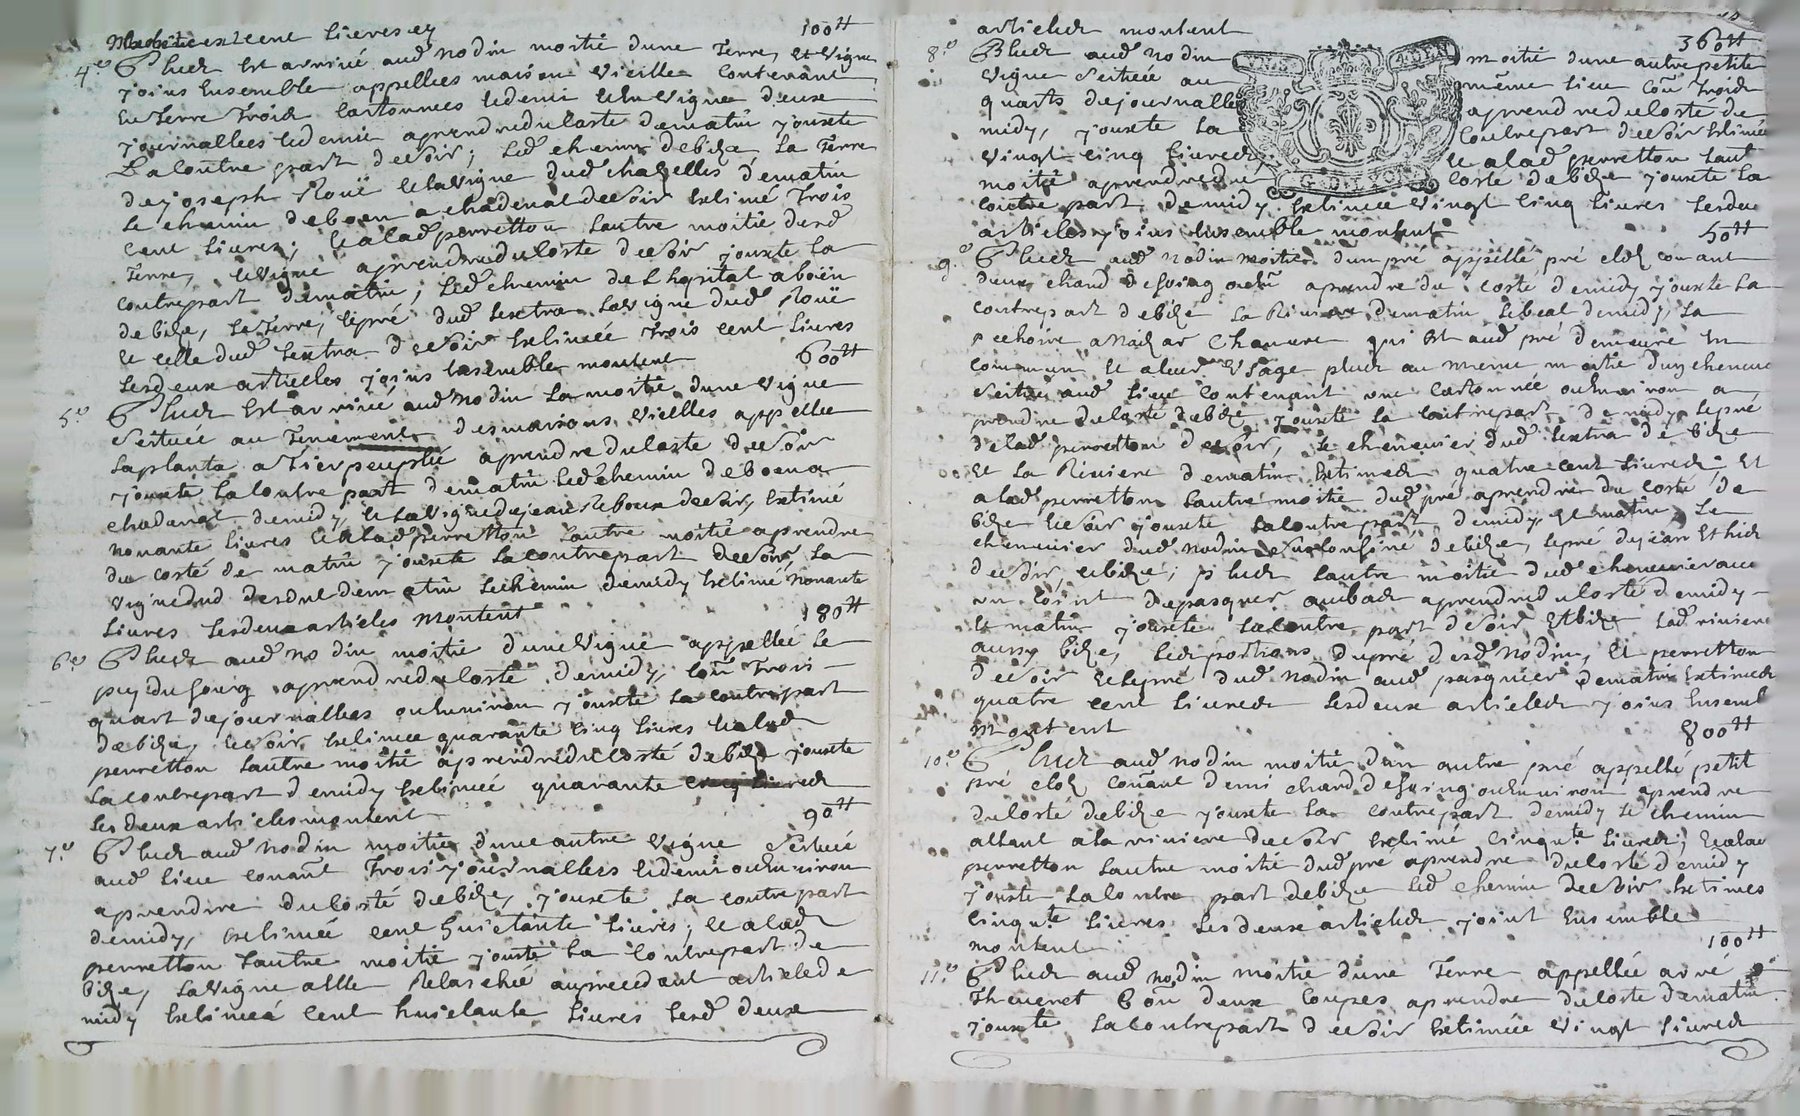 cent livres cy 100lt
4.o Plus est arrivé aud nodin moitié dune Terre, et vigne
joins Ensemble appellees maison vieille Contenant
En Terre Trois cartonnees Et demi Et En vigne deux
journallees Et demie aprendre du Costé de matin jouxte
La Contre part de soir; Led chemin de bize La Terre
de joseph Roüe Et la vigne dud chazelles de matin
Le chemin de boen a chadenat de soir Estimé Trois
Cent Livres; Et a lad perretton Lautre moitié desd
Terre, Et vigne aprendre du Costé de soir jouxte La
contrepart de matin, Led chemin de L hopital a boën
de bize, La Terre, Et pré dud Lextra La vigne dud Roüe
Et celle dud Lextra de soir Estimée Trois Cent Livres
Les deux articles joins Ensemble montent 600lt
5.o Plus Est arrivé aud nodin La moitié dune vigne
scituée au Tenement des maisons vielles appellée
La planta a Tierpeuplu aprendre du Costé de soir
jouxte La Contre part de matin Led chemin de boen a
chadenat de midy, Et La vigne de jean Reboux de soir, Estimé
nonante Livres Et a lad perretton Lautre moitié aprendre
du costé de matin jouxte La contrepart de soir, La
vigne dud de matin Le chemin de midy Estimé nonante
Livres Les deux articles montent 180lt
6.o Plus aud nodin moitié dune vigne appellée Le
puy du fourg aprendre du Costé de midy, Con Trois
quart de journallees ou Environ jouxte La contrepart
de bize, de soir Estimée quarante Cinq Livres Et a lad
perretton Lautre moitié aprendre du Costé de bize jouxte
La contrepart de midy Estimée quarante Cinq Livres
Les deux articles montent 90lt
7.o Plus aud nodin moitié dune autre vigne scituée
aud Lieu conant Trois journallees Et demi ou Environ
aprendre du Costé de bize, jouxte La contre part
de midy, Estimée Cent huictante Livres; Et a lad
perretton Lautre moitié jouxte La Contrepart de
bize, La vigne au precedant article de
midy Estimée Cent huictante Livres Lesd deux
articles montent 360lt
8.o Plus aud nodin moitié dune autre petite
vigne scituée au même Lieu Con Trois
quarts de journallee aprendre du Costé de
midy, jouxte La Contrepart de soir Estimée
vingt cinq Livres Et a lad perretton Lautre
moitié aprendre du Costé de bize jouxte La
contre part de midy Estimée vingt Cinq Livres Les deux
articles joins Ensemble montent 50lt
G. D. LYON
9.o Plus aud nodin moitié dun pré appellé pré clos conant
deux chard de foing ou En aprendre du costé de midy jouxte La
contrepart de bize La Riviere de matin Le beal de midy, La
pechoire a Naizar Chanvre qui Est aud pré demeure En
commun Et a leur usage plus au meme moitié du chenevier
scitué aud Lieu Contenant une Cartonnée ou Environ a
prendre du Costé de bize jouxte La Contrepart de midy Le pré
de lad perretton de soir, Le chenevier dud Lextra de bize
Et La Riviere de matin Estimes quatre Cent Livres; Et
a lad perretton Lautre moitié dud pré aprendre du Costé de
bize Et soir jouxte La contre part de midy Et matin Le
chenevier dud nodin confiné de bize, Le pré de jean Ethier
de soir, Et bize; plus Lautre moitié dud chenevier avec
un Coint de pasquier au bas aprendre du Costé de midy
Et matin jouxte La contre part de soir Et bize Lad riviere
aussy bize, Les portions du pré desd nodin, Et perretton
de soir Et Le pré dud nodin aud pasquier de matin Estimés
quatre Cent Livres Les deux articles joins Ensemble
montent 800lt
10.o Plus aud nodin moitié dun autre pré appellé petit
pré clos Conant demi chard de foing ou Environ aprendre
du Costé de bize jouxte La contrepart de midy Le chemin
allant a la riviere de soir Estimé Cinqu.te Livres; Et a lad
perretton Lautre moitié dud pré aprendre du Costé de midy
jouxte La Contre part de bize Led chemin de soir Estimes
Cinqu.te Livres Les deux articles joint Ensemble
montent 100lt
11.o Plus aud nodin moitié dune Terre appellée
Theveret Con deux Coupes aprendre du Costé de matin
jouxte La contrepart de soir Estimée vingt Livres